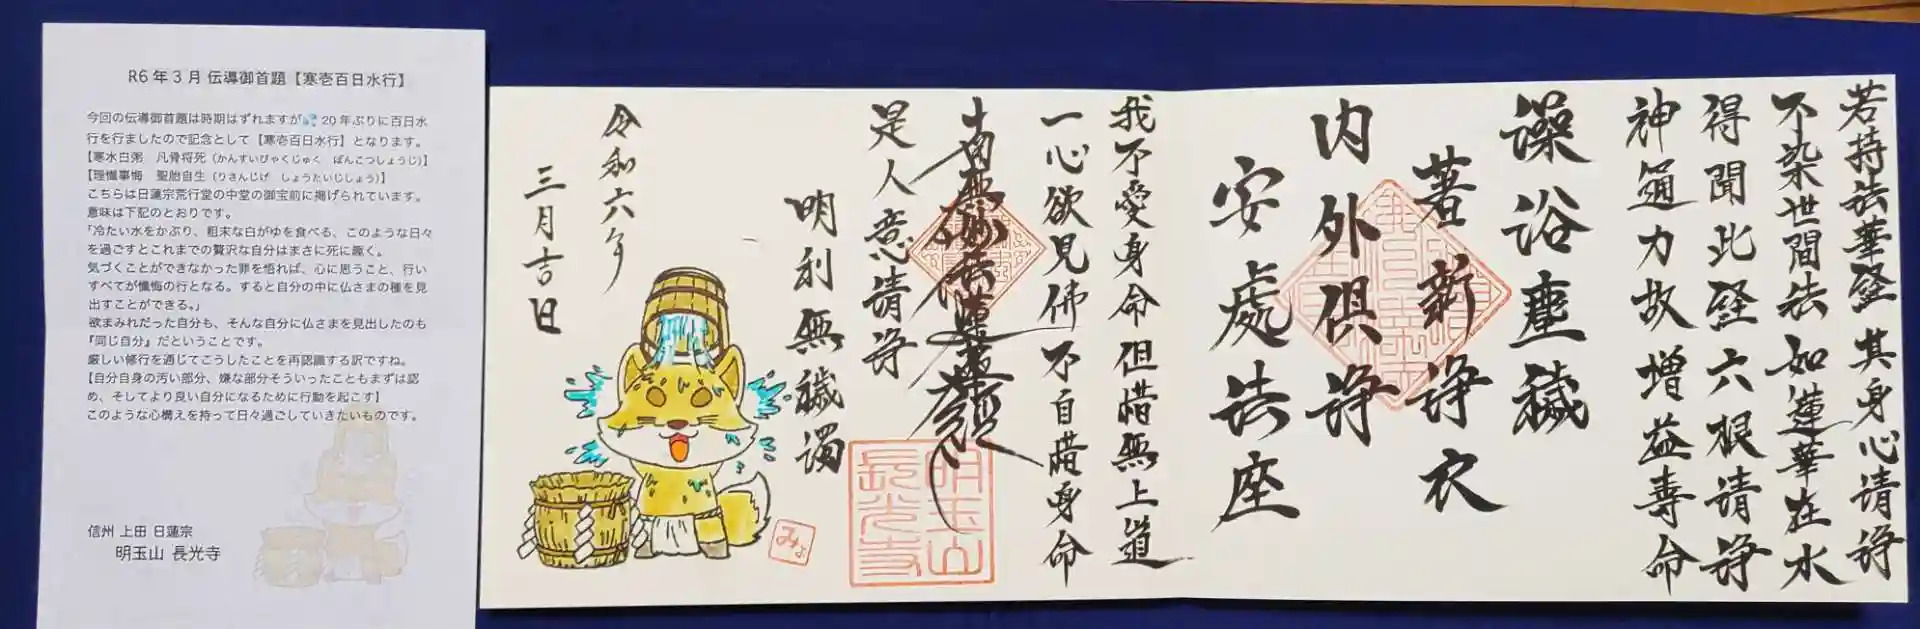 R6年3月 伝導御首題【寒壱百日水行】
今回の伝導御首題は時期はずれますが💦20年ぶりに百日水
行を行ましたので記念として【寒壱百日水行】となります。
【寒水白粥 凡骨将死（かんすいびゃくじゅく ぼんこつしょうじ）】
【理懺事悔 聖胎自生（りさんじげ しょうたいじしょう）】
こちらは日蓮宗荒行堂の中堂の御宝前に掲げられています。
意味は下記のとおりです。
「冷たい水をかぶり、粗末な白がゆを食べる、このような日々
を過ごすとこれまでの贅沢な自分はまさに死に趣く。
気づくことができなかった罪を悟れば、心に思うこと、行い
すべてが懺悔の行となる。すると自分の中に仏さまの種を見
出すことができる。」
欲まみれだった自分も、そんな自分に仏さまを見出したのも
『同じ自分』だということです。
厳しい修行を通じてこうしたことを再認識する訳ですね。
【自分自身の汚い部分、嫌な部分そういったこともまずは認
め、そしてより良い自分になるために行動を起こす】
このような心構えを持って日々過ごしていきたいものです。
信州 上田 日蓮宗
明玉山 長光寺
若持法華経其身心清浄
不染世間法如蓮華在水
得聞此経六根清浄
神通力故増益壽命
澡浴塵穢
著新浄衣
内外倶浄
安處法座
我不愛身命但惜無上道
一心欲見佛不自惜身命
南無妙法蓮華経
是人意清浄
明利無穢濁
令和六年
三月吉日
明玉山
長光寺
みょ